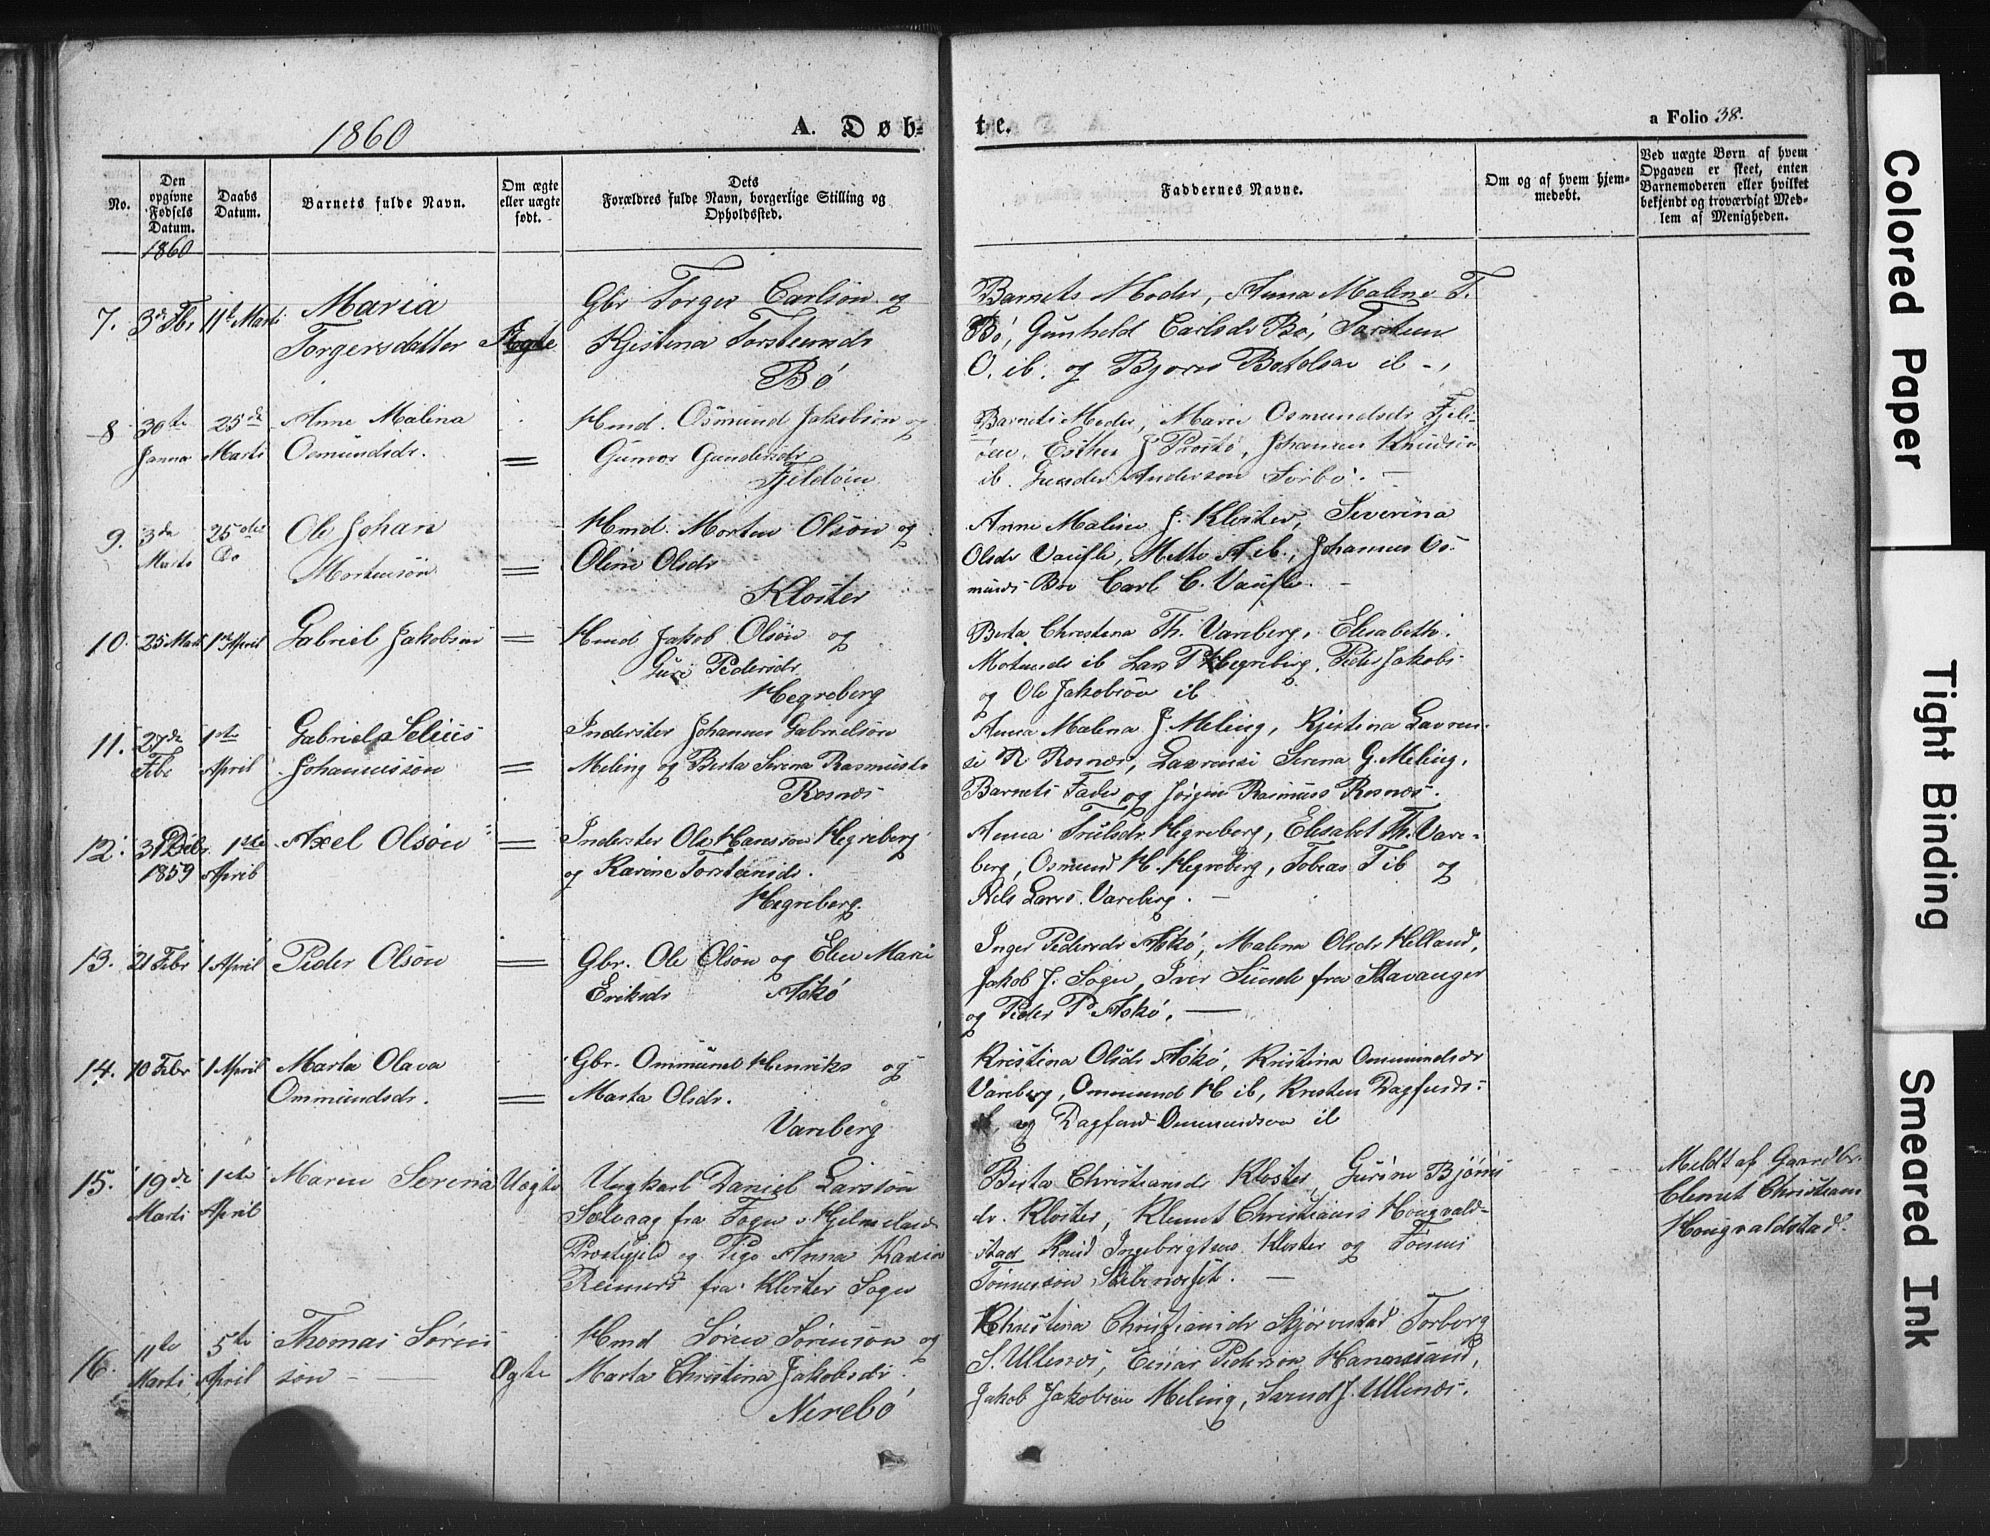 1860
A. Døb-
te.
a Folio 38.
No.
Den opgivne Fødsels Datum.
Daabs Datum.
Barnets fulde Navn.
Om ægte eller uægte født.
Dets Forældres fulde Navn, borgerlige Stilling og Opholdssted.
Faddernes Navne.
Om og af hvem hjemmedøbt.
Ved uægte Børn af hvem
Opgaven er skeet, enten
Barnemoderen eller hvilket
bekjendt og troværdigt Med-
lem af Menigheden.
1860
7. 3de Fbr 11te Marti
Maria
Torgersdatter
Ægte
Gbr Torger Carlson og
Kjistina Torsteinsdr
Bö
Barnets Moder, Anna Malene T.
Bö, Gunheld Carlsdr Bö, Torsten
O. ib. og Bjorno Botolson ib -,
8 30te Janna 25de Marti
Anne Malina
Osmundsdr.
=
Hmd. Osmund Jakobson og
Gunvor Gundersdr
Fjeldöen
Barnets Moder, Maren Osmundsdr Fjeld-
öen, Esther J Prostö, Johannes Knudson
ib. Gunder Anderson Sorbö. -
9. 3de Marti 25de Do
Ole Johan
Mortensön
=
Hmd. Morten Olson og
Oline Olsdr
Kloster
Anne Maline J. Kloster, Severina
Olsdr Vaufle, Mette A ib., Johannes Os-
munds Bro Carl C. Vaufle. -
10. 25 Marti 1ste April
Gabriel Jakobsen
=
Hmd Jakob Olson og
Guri Pedersdr
Hegreberg
Berta Christena Th. Vareberg, Elisabeth
ib Lars P Hegreberg, Peder Jakobs
og Ole Jakobson ib
11. 27de Febr 1ste April
Gabriel Selius
Johannesson
=
Inderster Johannes Gabrielson
Meling og Berta Serena Rasmusdr
Rosnes
Anna Malena J. Meling, Kjistina Lauren-
si R Rosnes, Laurensi Serena G. Meling,
Barnets Fader og Jörgen Rasmus Rosnes.
12. 31 Debr. 1859 1ste April
Axel Olsön
=
Inderster Ole Hansson Hegreberg
og Karine Torsteinsdr.
Hegreberg.
Anna Trulsdr Hegreberg, Elisabet Th. Vare-
berg, Osmund H. Hegreberg, Tobias T ib og
Nels Lars. Vareberg. -
13. 21 Febr 1 April
Peder Olsön
=
Gbr. Ole Olson og Elen Marie
Eriksdr Askö
Inger Pedersdr Askö, Malena Olsdr Helland,
Jakob J. Sogn, Iver Sunde fra Stavanger
og Peder P Askö. -
14. 10 Febr 1 April
Marta Olava
Ommundsdr.
=
Gbr. Ommund Henriks og
Marta Olsdr.
Vareberg
Kristina Olsdr Askö, Kristina Ommundsdr
Vareberg, Ommund H ib, Kresten Dagfinds-
og Dagfend Ommundson ib
15. 19de Marti 1ste April
Maren Serena
Uægte
Ungkarl Daniel Larsson
Solvaag fra Fogn, Hjelmelands
Prestegjeld og Pige Anna Karin
Reimers fra Kloster Sogn
Berta Christiansdr Kloster, Gurine Björns
dr. Kloster, Klemet Christians Hougvald-
stad Knud Ingebrigtsen Kloster og Tönnes
Tönneson
Meldt af Gaardbr.
Clemet Christians
Hougvaldstad.
16. 11te Marti 5te April
Thomas Sören
sön
Ægte
Hmd Sören Sörenson og
Marta Christina Jakobsdr.
Nerebö
Christina Christiansdr Torborg
S. Ullenes, Einar Pederson
Jakob Jakobson Meling, J. Ullenes.
Colored Paper
Tight Binding
Smeared Ink